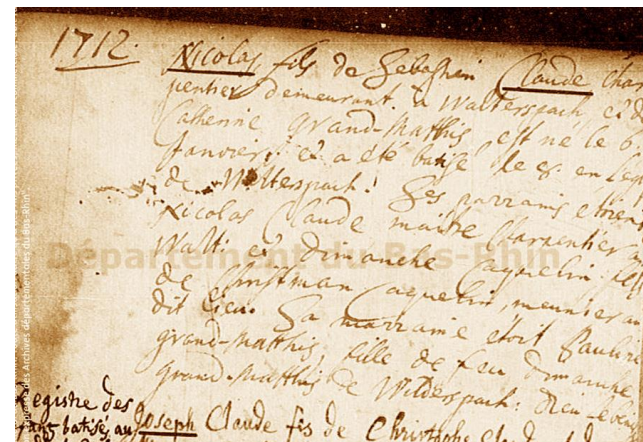 1712.
Nicolas fils de Sebastien Claude Char
pentier demeurant à Walterspach, et d
Catherine grand-Matthis est né le 6.
Janvier, et a été batisé le 8. en l'eg
de Wilterspach. Ses parrains etoient
Nicolas Claude maitre Charpentier
Walt: et dimanche Caquelin
de Christman Caquelin, meunier au
dit lieu. Sa marraine etoit Paulin
grand-Matthis, fille de feu dimanche
grand-Matthis de Wilderspach: Dieu
Registre des
batisé au
Joseph Claude fis de Christophe
Département du Bas-Rhin
des Archives départementales du Bas-Rhin